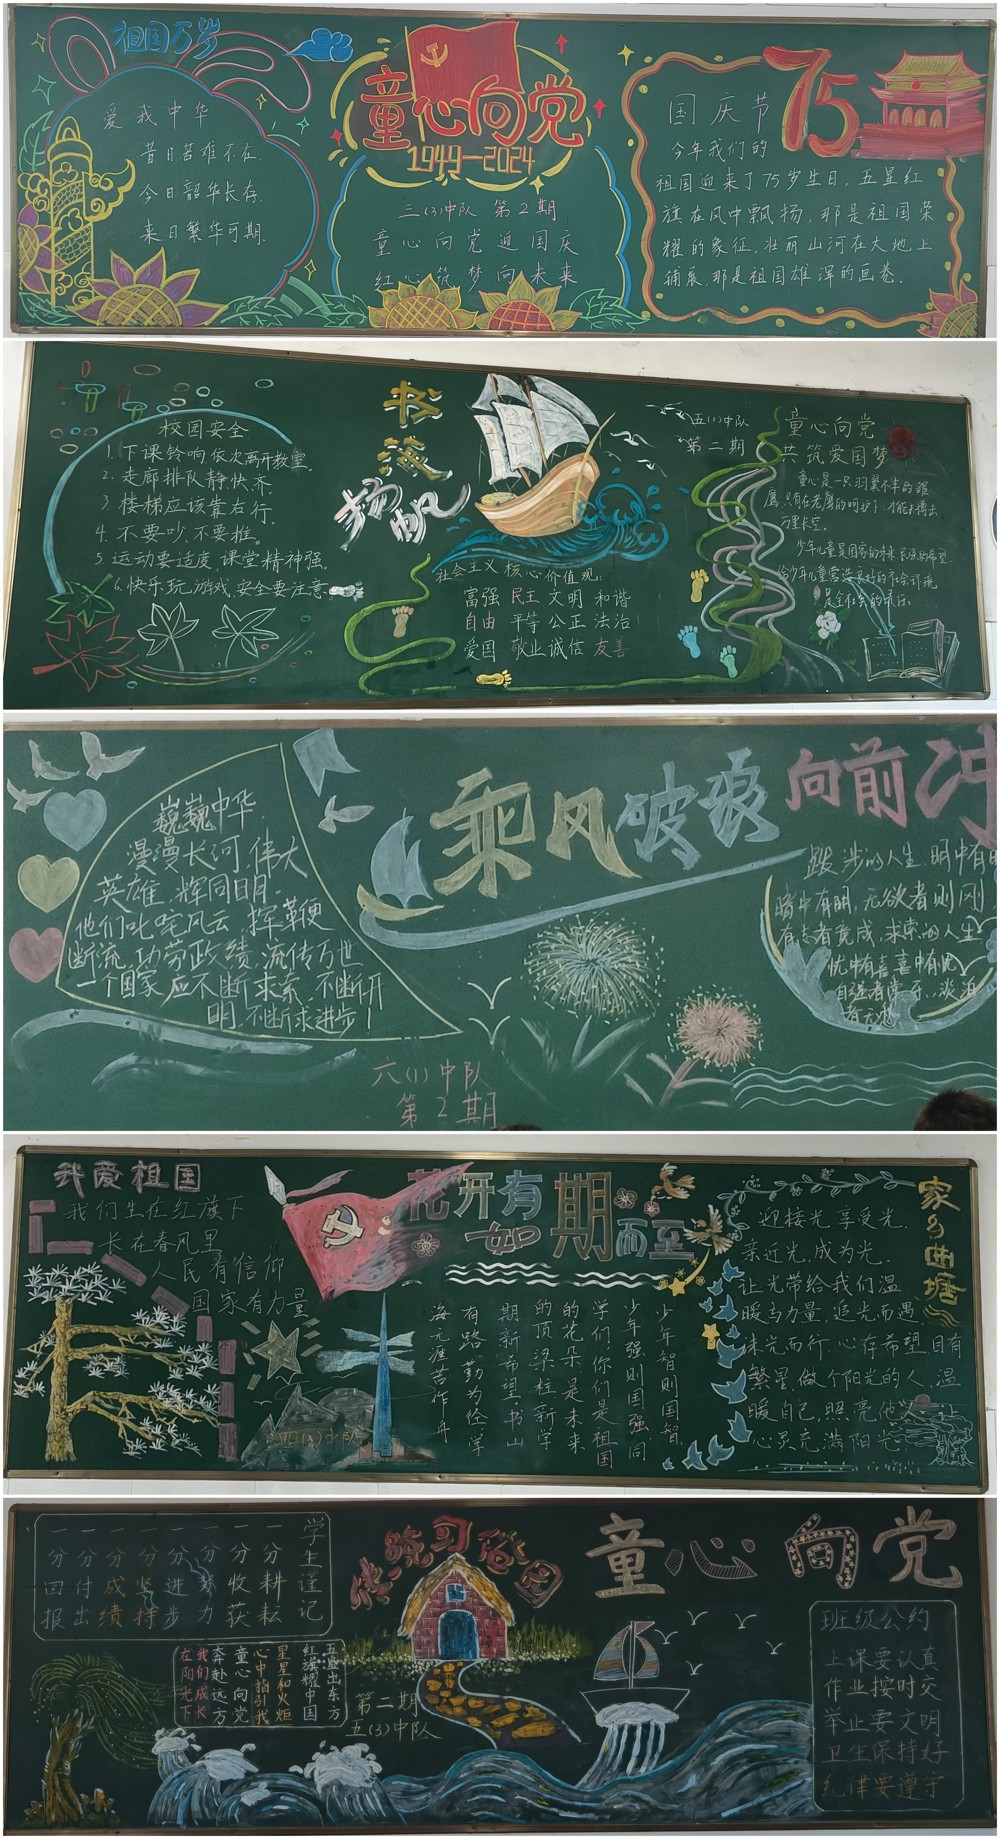 祖国万岁
爱我中华
昔日苦难不在.
今日韶华长存.
来日繁华可期.
童心向党
1949—2024
三(3)中队 第2期
童心向党迎国庆
红心筑梦向未来
75
国庆节
今年我们的
祖国迎来了75岁生日，五星红
旗在风中飘扬，那是祖国荣
耀的象征，壮丽山河在大地上
铺展，那是祖国雄浑的画卷。
校园安全
1.下课铃响，依次离开教室。
2.走廊排队静快齐。
3.楼梯应该靠右行。
4.不要吵，不要推。
5.运动要适度，课堂精神强。
6.快乐玩游戏，安全要注意
书海
扬帆
社会主义核心价值观:
富强 民主 文明 和谐
自由 平等 公正 法治
爱国 敬业 诚信 友善
五(1)中队
第二期
童心向党
共筑爱国梦
童心是一只羽翼未丰的雏
鹰，只有在老鹰的呵护下，才能搏击
万里长空。
少年儿童是国家的未来，民族的希望，
给少年儿童营造良好的社会环境
是全社会的责任。
巍巍中华，
漫漫长河，伟大
英雄，辉同日月.
他们叱咤风云，挥鞭
断流，功劳政绩，流传万世
一个国家应不断求索，不断开
明，不断求进步！
乘风破浪向前冲
跋涉的人生，明中有暗
暗中有明，无欲者则刚
有志者竟成，求索的人生
忧中有喜，喜中有忧
六(1)中队
第2期
我爱祖国
我们生在红旗下
长在春风里
人民有信仰
国家有力量
四(2)中队
花开有期
如期而至
少年智则国智，
少年强则国强，同
学们，你们是祖国
的花朵，是未来
的顶梁柱，新学
期新希望，书山
有路勤为径，学
海无涯苦作舟
家乡曲塘
迎接光，享受光，
亲近光，成为光.
让光带给我们温
暖与力量，追光而遇，
沐光而行.心存希望，目有
繁星，做个阳光的人，温
暖自己，照亮他人，让
心灵充满阳光
学生谨记
一分耕耘
一分收获
一分努力
一分进步
一分坚持
一分成绩
一分付出
一分回报
五星出东方
红旗耀中国
星星和火炬
心中指引我
童心向党
奔赴远方
我们成长
在阳光下
传统习俗
第二期
五(3)中队
童心向党
班级公约
上课要认真
作业按时交
举止要文明
卫生保持好
纪律要遵守